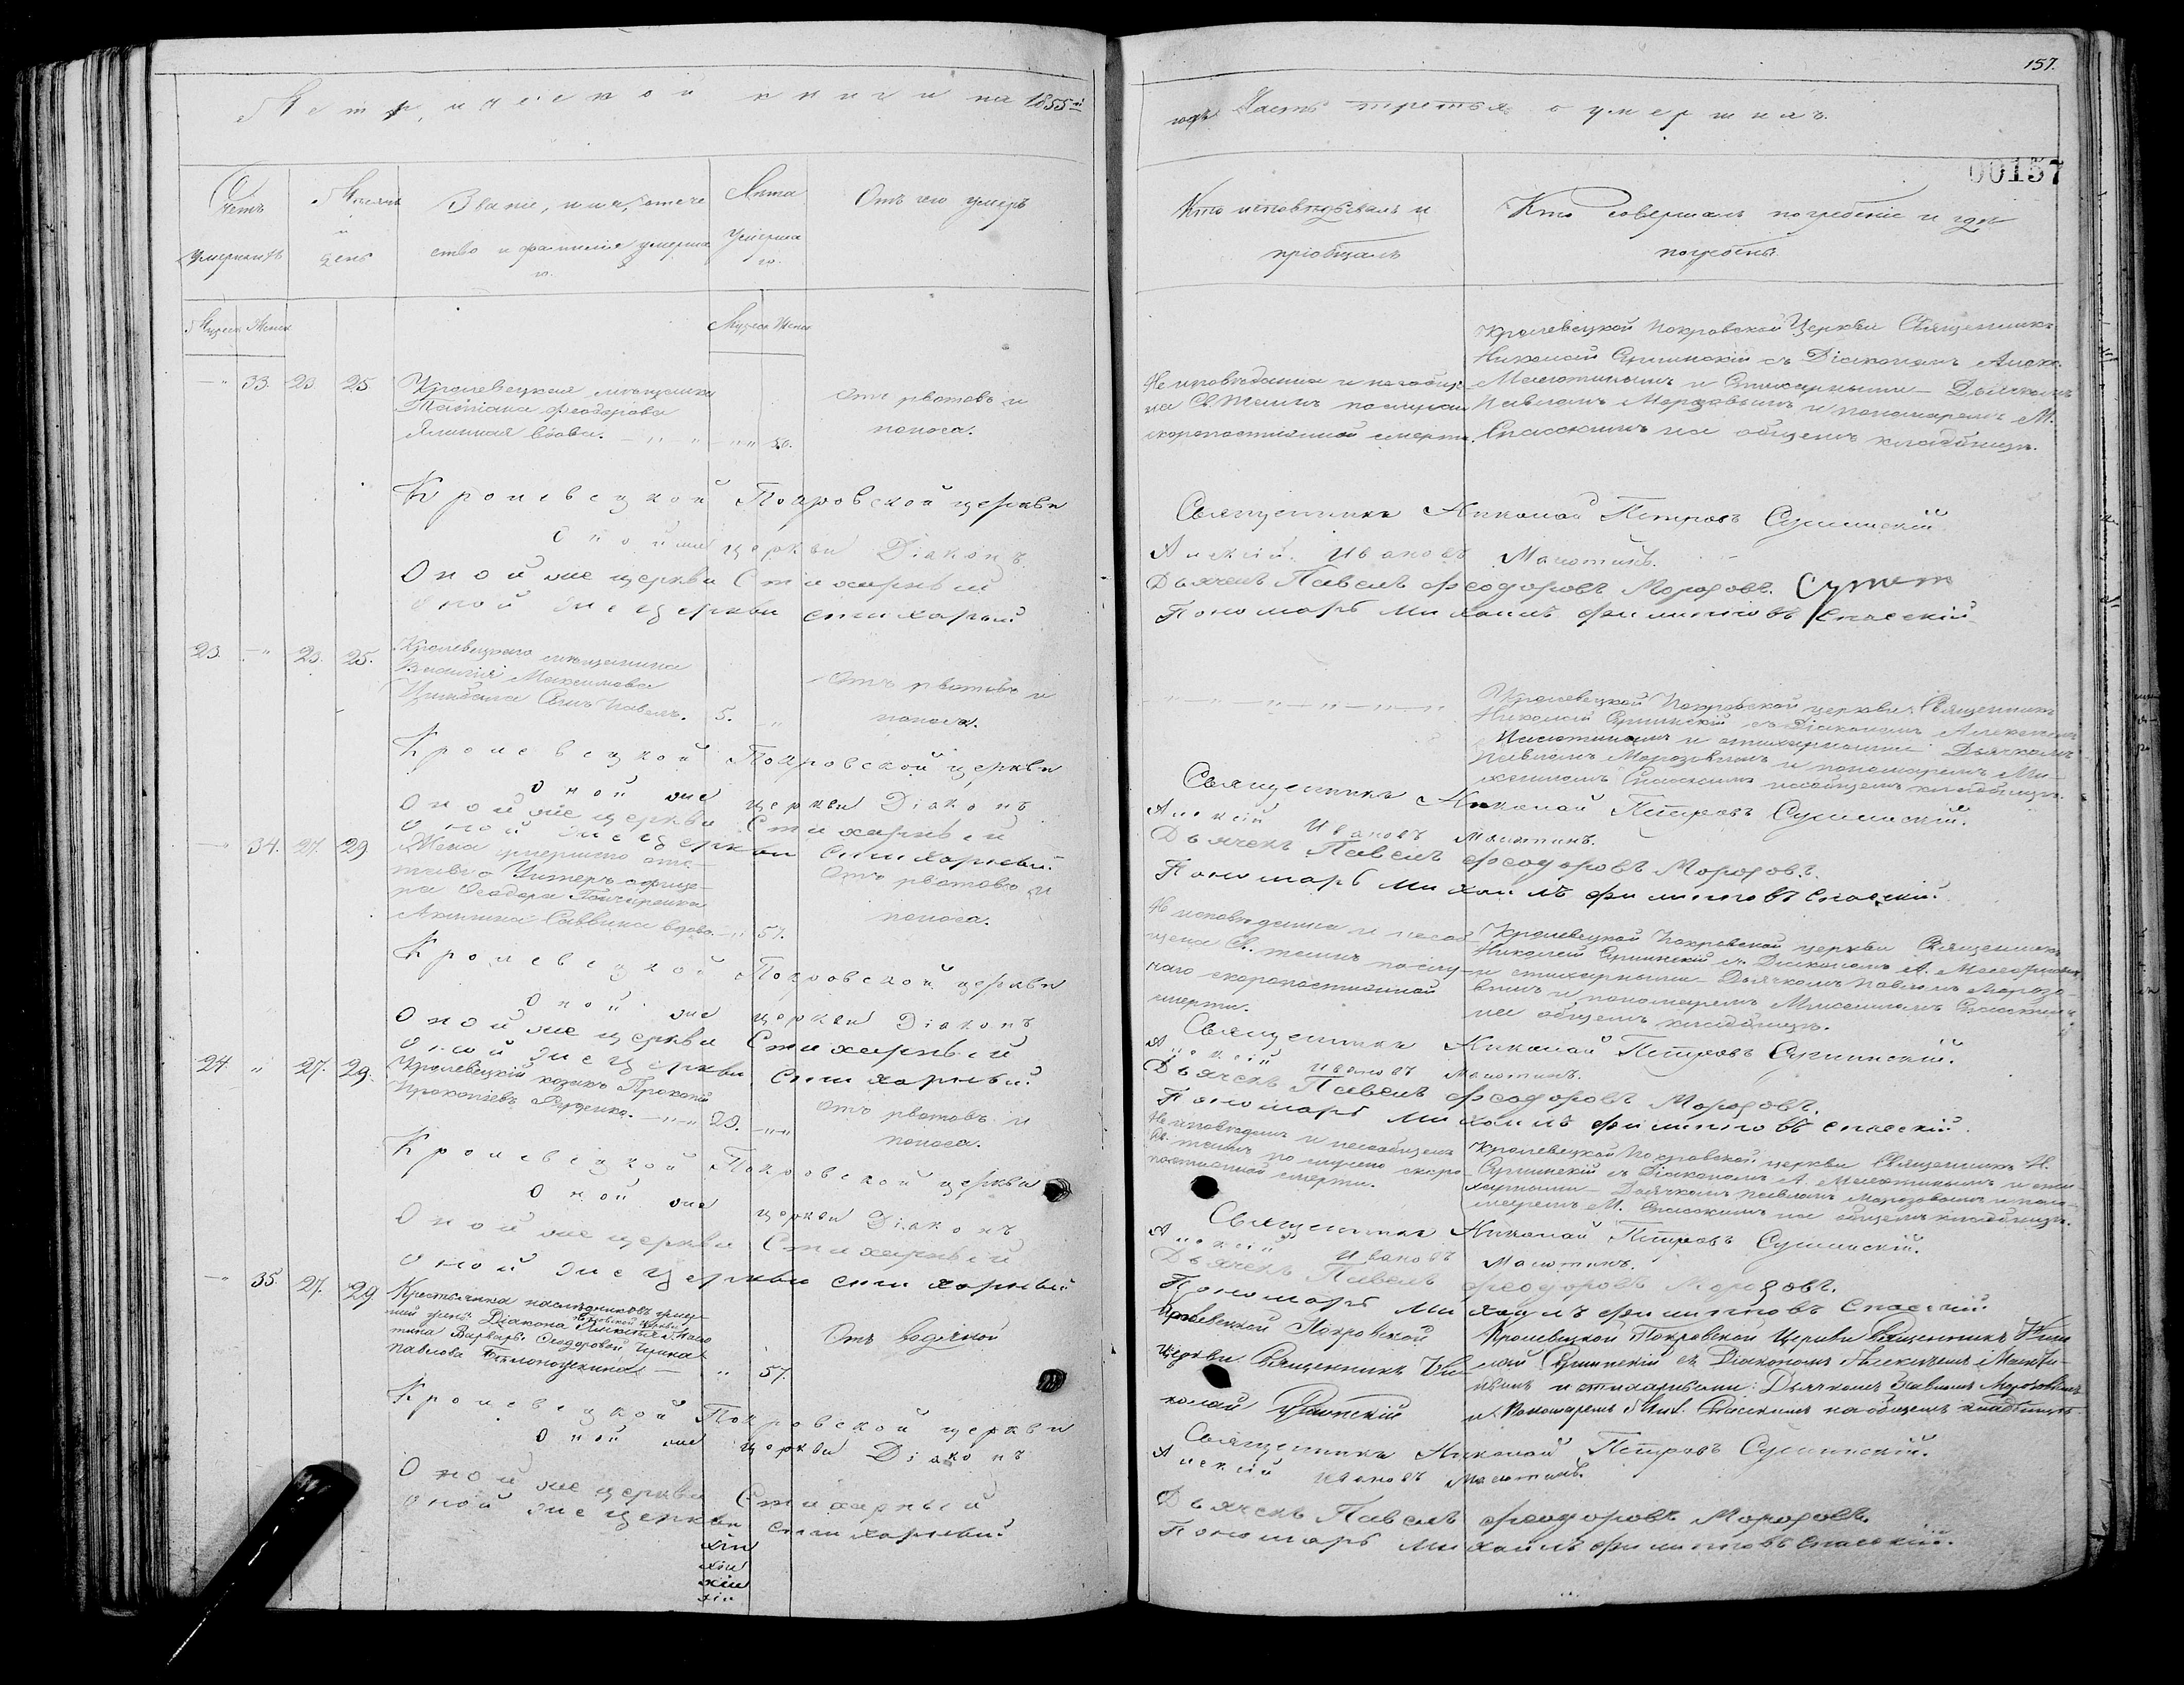 Метрической книги на 1855й
годъ Часть третья о умершихъ.
157.
00157
Счетъ умершихъ
Мѣсяцъ и день
Званіе, имя, отече
ство и фамилія умерша
го.
Лѣта
Умерша
го.
Отъ чего умеръ
Кто исповѣдывалъ и
пріобщалъ
Кто совершалъ погребеніе и гдѣ
погребены
Мужеск Женск
Мужеск Женск
—„ 33. 23 25.
Кролевецкая мѣщанка
Татіана Феодорова
вдова. — „ — „ „ 50.
Отъ рвотовъ и
поноса.
Не исповѣдана и непріобще
на Св. Таинъ по случаю
скоропостижной смерти.
Кролевецкой Покровской Церкви Священникъ
Николай Сушинскій съ Діакономъ Алекс.
Малютинымъ и стихарными — Дьячкомъ
Павломъ Морозовымъ и пономаремъ М.
Спасскимъ на общемъ кладбищѣ.
Кролевецкой Покровской церкви Священникъ Николай Петровъ Сушинскій
Оной же церкви Діаконъ Алексій Ивановъ Малютинъ.
Оной же церкви Стихарный Дьячекъ Павелъ Феодоровъ Морозовъ.
Оной же церкви стихарный Пономарь Михаилъ Филипповъ Спасскій
23. —„ 23. 25.
Кролевецкаго мѣщанина
Василія Максимова
Цимбала Сынъ Павелъ. 5. „
Отъ рвотовъ и
поноса.
— „ — „ — „ — „
Кролевецкой Покровской церкви Священникъ
Николай Сушинскій съ Діакономъ Алексіемъ
Малютинымъ и стихарными Дьячкомъ
Павломъ Морозовымъ и пономаремъ Ми-
хаиломъ Спасскимъ на общемъ кладбищѣ.
Кролевецкой Покровской церкви Священникъ Николай Петровъ Сушинскій.
Оной же церкви Діаконъ Алексій Ивановъ Малютинъ.
Оной же церкви Стихарный Дьячекъ Павелъ Феодоровъ Морозовъ.
Оной же церкви стихарный Пономарь Михаилъ Филипповъ Спасскій.
—„ 34. 27. 29
Жена умершаго отс-
тавнаго Унтеръ офице-
ра Феодора
Саввина вдова. — „ 57.
Отъ рвотовъ и
поноса.
Не исповѣдана и непріоб-
щена Св. таинъ по слу-
чаю скоропостижной
смерти.
Кролевецкой Покровской церкви Священникъ
Николай Сушинскій съ Діакономъ А. Малютинымъ
и стихарными — Дьячкомъ Павломъ Морозо-
вымъ и пономаремъ Михаиломъ Спасскимъ
на общемъ кладбищѣ.
Кролевецкой Покровской церкви Священникъ Николай Петровъ Сушинскій.
Оной же церкви Діаконъ Алексій Ивановъ Малютинъ.
Оной же церкви Стихарный Дьячекъ Павелъ Феодоровъ Морозовъ.
Оной же церкви стихарный Пономарь Михаилъ Филипповъ Спасскій.
24. „ 27. 29.
Кролевецкій козакъ Прокопій
Прокопіевъ — „ — „ 20. „ „
Отъ рвотовъ и
поноса.
Не исповѣданъ и непріобщенъ
Св. таинъ по случаю скоро-
постижной смерти.
Кролевецкой Покровской церкви Священникъ Н.
Сушинскій съ Діакономъ А. Малютинымъ и сти
харными — Дьячкомъ Павломъ Морозовымъ и поно-
маремъ М. Спасскимъ на общемъ кладбищѣ.
Кролевецкой Покровской церкви Священникъ Николай Петровъ Сушинскій.
Оной же церкви Діаконъ Алексій Ивановъ Малютинъ.
Оной же церкви Стихарный Дьячекъ Павелъ Феодоровъ Морозовъ.
Оной же церкви стихарный Пономарь Михаилъ Филипповъ Спасскій.
—„ 35. 27. 29
Крестьянка наслѣдниковъ умер-
Діакона Алексія Малю
тина Варвары Феодоровой Ирина
Павлова — „ 57.
Отъ водяной
Кролевецкой Покровской
Церкви Священникъ Ни-
колай Сушинскій
Кролевецкой Покровской Церкви Священникъ Нико
лай Сушинскій съ Діакономъ Алексѣемъ Малюти-
нымъ и стихарными: Дьячкомъ Павломъ Морозовымъ
и Пономаремъ Мих. Спасскимъ на общемъ кладбищѣ.
Кролевецкой Покровской церкви Священникъ Николай Петровъ Сушинскій.
Оной же церкви Діаконъ Алексій Ивановъ Малютинъ.
Оной же церкви Стихарный Дьячекъ Павелъ Феодоровъ Морозовъ.
Оной же церкви стихарный Пономарь Михаилъ Филипповъ Спасскій.